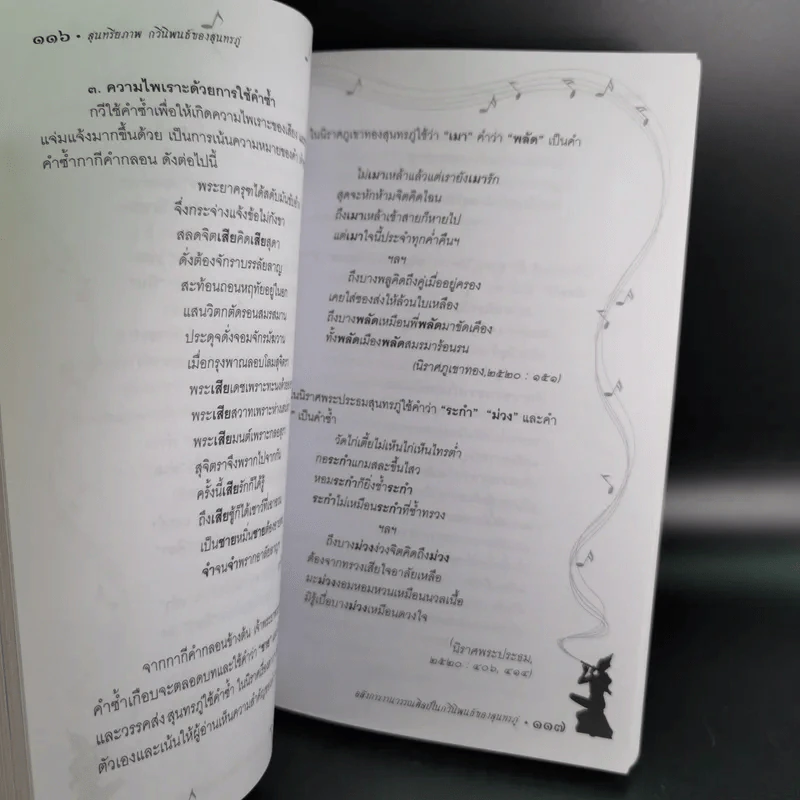 ๑๑๖ • สุนทรียภาพ กวีนิพนธ์ของสุนทรภู่
๓. ความไพเราะด้วยการใช้คำซ้ำ
กวีใช้คำซ้ำเพื่อให้เกิดความไพเราะของเสียง
แจ่มแจ้งมากขึ้นด้วย เป็นการเน้นความหมายของคำ
คำซ้ำกากีคำกลอน ดังต่อไปนี้
พระยาครุฑได้สดับ
จึ่งกระจ่างแจ้งข้อไม่กังขา
สลดจิตเสียคิดเสียสุดา
ดั่งต้องจักราบรรลัยลาญ
สะท้อนถอนหฤทัยอยู่ในอก
แสนวิตกตัดรอนสมรสมาน
ประดุจดั่งจอมจักรมัฆวาน
เมื่อกรุงพาณลอบโลมสุจิตรา
พระเสียเดชเพราะ
พระเสียสวาทเพราะ
พระเสียมนต์เพราะ
สุจิตราจึงพรากไปจาก
ครั้งนี้เสียรักก็ได้รู้
ถึงเสียชู้ก็ได้
เป็นชายหมิ่นชาย
จำจนจำพรากอาลัย
จากกากีคำกลอนข้างต้น
คำซ้ำเกือบจะตลอดบทและใช้คำว่า
และวรรคส่ง สุนทรภู่ใช้คำซ้ำ ในนิราศ
ตัวเองและเน้นให้ผู้อ่านเห็นความสำคัญ
ในนิราศภูเขาทองสุนทรภู่ใช้ว่า “เมา” คำว่า “พลัด” เป็นคำ
ไม่เมาเหล้าแล้วแต่เรายังเมารัก
สุดจะหักห้ามจิตคิดไฉน
ถึงเมาเหล้าเช้าสายก็หายไป
แต่เมาใจนี้ประจำทุกค่ำคืนฯ
ฯลฯ
ถึงบางพลูคิดถึงคู่เมื่ออยู่ครอง
เคยใส่ซองส่งให้ล้วนใบเหลือง
ถึงบางพลัดเหมือนพี่พลัดมาขัดเคือง
ทั้งพลัดเมืองพลัดสมรมาร้อนรน
(นิราศภูเขาทอง,๒๕๒๐ : ๑๕๑)
ในนิราศพระประธมสุนทรภู่ใช้คำว่า “ระกำ” “ม่วง” และคำ
เป็นคำซ้ำ
วัดไก่เตี้ยไม่เห็นไก่เห็นไทรต่ำ
กอระกำแกมสละขึ้นไสว
หอมระกำก็ยิ่งช้ำระกำ
ระกำไม่เหมือนระกำที่ช้ำทรวง
ฯลฯ
ถึงบางม่วงง่วงจิตคิดถึงม่วง
ต้องจากทรวงเสียใจอาลัยเหลือ
มะม่วงงอมหอมหวนเหมือนนวลเนื้อ
มิรู้เบื่อบางม่วงเหมือนดวงใจ
(นิราศพระประธม,
๒๕๒๐ : ๔๐๖, ๔๑๔)
อลังการงานวรรณศิลป์ในกวีนิพนธ์ของสุนทรภู่ • ๑๑๗